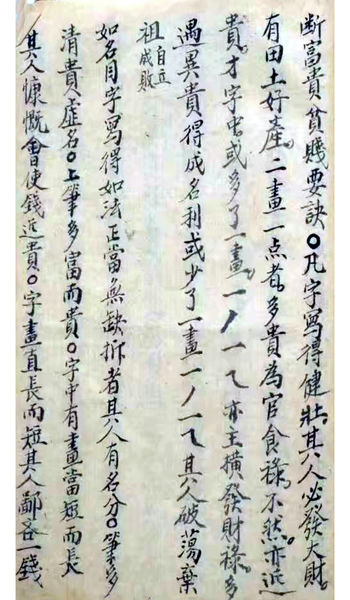 断富貴貧賤要訣〇凡字寫得健壯其人必發大財
有田土好產二畫一点者多貴為官食祿不然亦近
貴才字中或多了一畫一丿一乀亦主橫發財祿多
遇異貴得成名利或少了一畫一丿一乀其人破蕩棄
祖自立成敗
如名目字寫得如法正當無缺折者其人有名分〇筆多
清貴人虛名〇上筆多富而貴〇字中有畫當短而長
其人慷慨會使錢近貴〇字畫直長而短其人鄙吝一錢